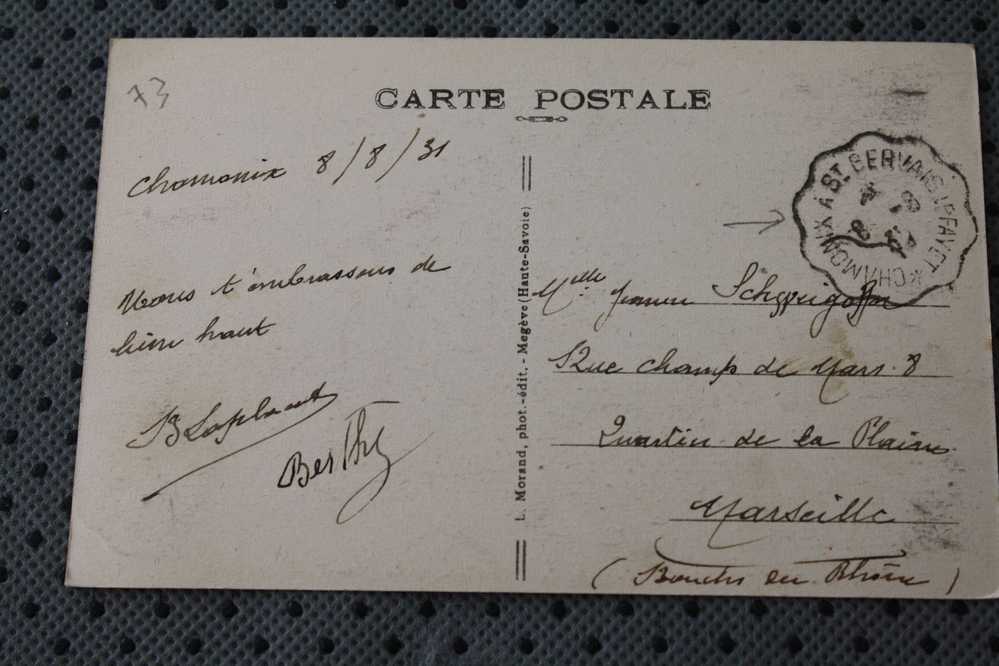 73
CARTE POSTALE
Chamonix 8/8/31
Nous t'embrassons de
bien haut
B Laplant
Berthy
L. Morand, phot.-édit. - Megève (Haute-Savoie)
CHAMONIX A ST GERVAIS-LE FAYET *
Melle
Rue champ de Mars. 8
Quartier de la Plaine
Marseille
(Bouches du Rhône)